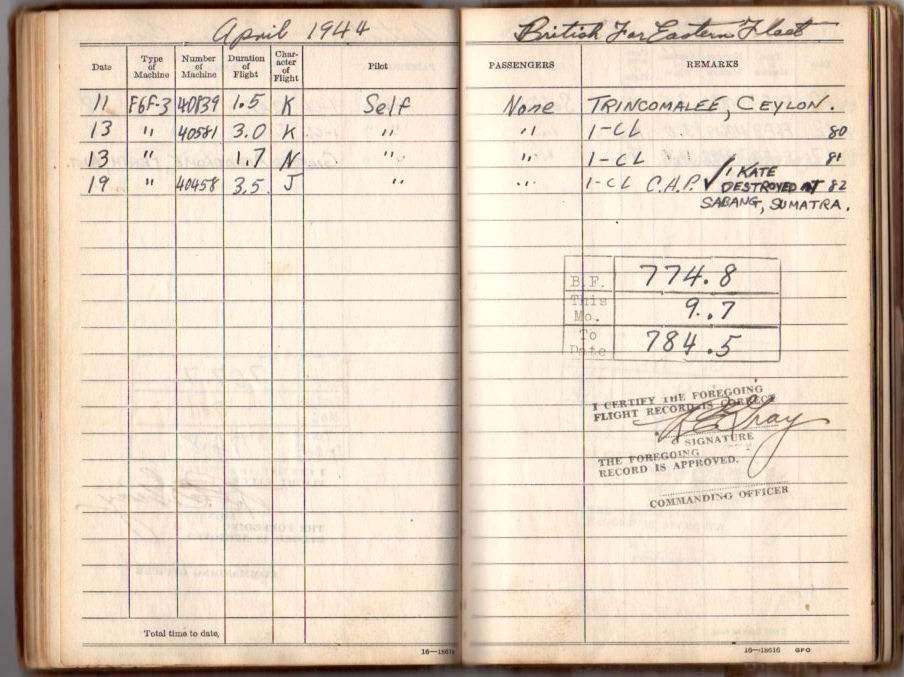 April 1944
Date Type of Machine Number of Machine Duration of Flight Char-acter of Flight Pilot
11 F6F-3 40839 1.5 K Self
13 " 40581 3.0 K "
13 " 1.7 N "
19 " 40458 3.5 J "
Total time to date,
16—18616
British Far Eastern Fleet
PASSENGERS REMARKS
None TRINCOMALEE, CEYLON.
" 1-CL 80
" 1-CL 81
" 1-CL C.A.P. ✓ 1 KATE
DESTROYED AT 82
SABANG, SUMATRA.
B.F. 774.8
This Mo. 9.7
To Date 784.5
I CERTIFY THE FOREGOING
FLIGHT RECORD IS CORRECT
SIGNATURE
THE FOREGOING
RECORD IS APPROVED.
COMMANDING OFFICER
16—18616 GPO